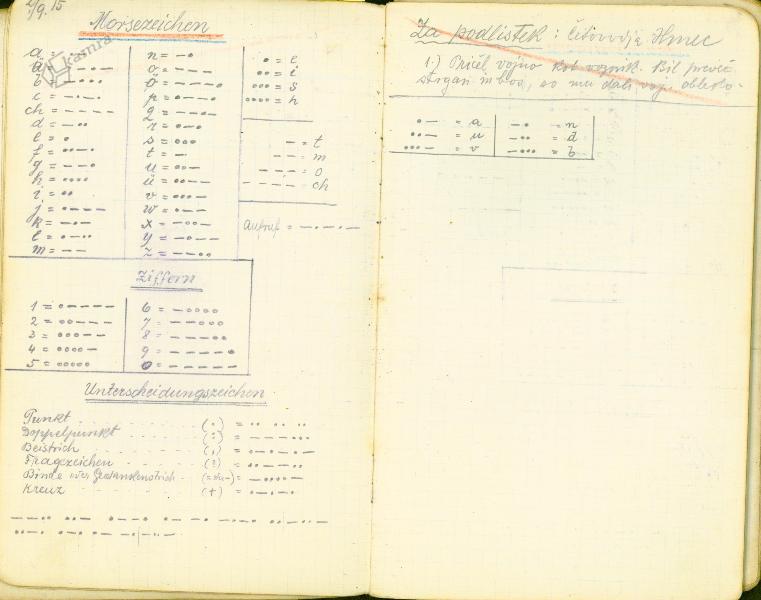 2/9.15
Morsezeichen
a = •—
ä = •—•—
b = —•••
c = —•—•
ch = ————
d = —••
e = •
f = ••—•
g = ——•
h = ••••
i = ••
j = •———
k = —•—
l = •—••
m = ——
n = —•
o = ———
ö = ———•
p = •——•
q = ——•—
r = •—•
s = •••
t = —
u = ••—
ü = ••——
v = •••—
w = •——
x = —••—
y = —•——
z = ——••
• = e
•• = i
••• = s
•••• = h
— = t
—— = m
——— = o
———— = ch
Aufruf = —•—•—
Ziffern
1 = •————
2 = ••———
3 = •••——
4 = ••••—
5 = •••••
6 = —••••
7 = ——•••
8 = ———••
9 = ————•
0 = —————
Unterscheidungszeichen
Punkt (.) = •• •• ••
Doppelpunkt (:) = ———•••
Beistrich (,) = •—•—•—
Fragezeichen (?) = ••——••
Binde oder Gedankenstrich = —••••—
Kreuz (+) = •—•—•
Za podlistek : Četovodja Hmec
1.) Pričel vojno kot voznik. Bil preveč
strogan in bos, so mu dali voj. obleko-
•— = a
••— = u
•••— = v
—• = n
—•• = d
—••• = b
kamra